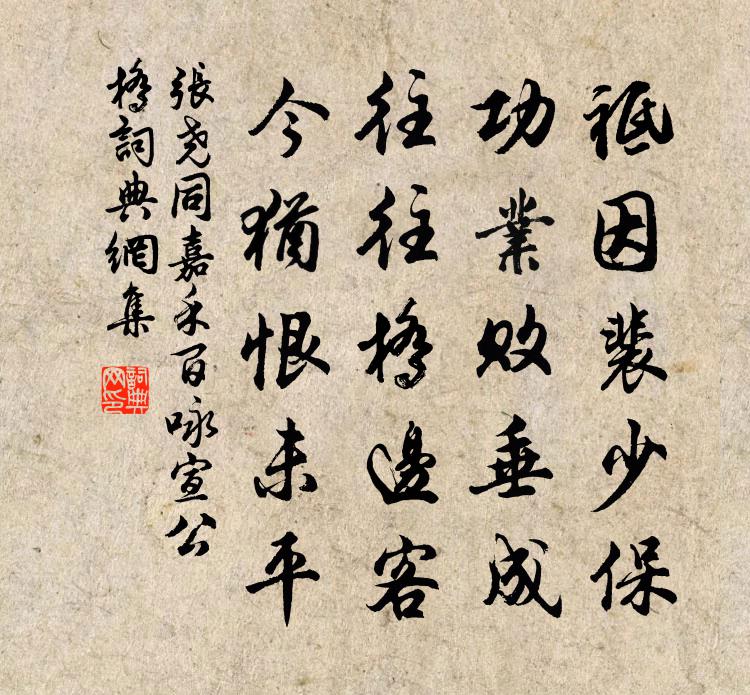 祗因裴少保
功業敗垂成
往往橋邊客
今猶恨未平
張堯同嘉禾百咏宣公
橋詞典網集
詞典網印